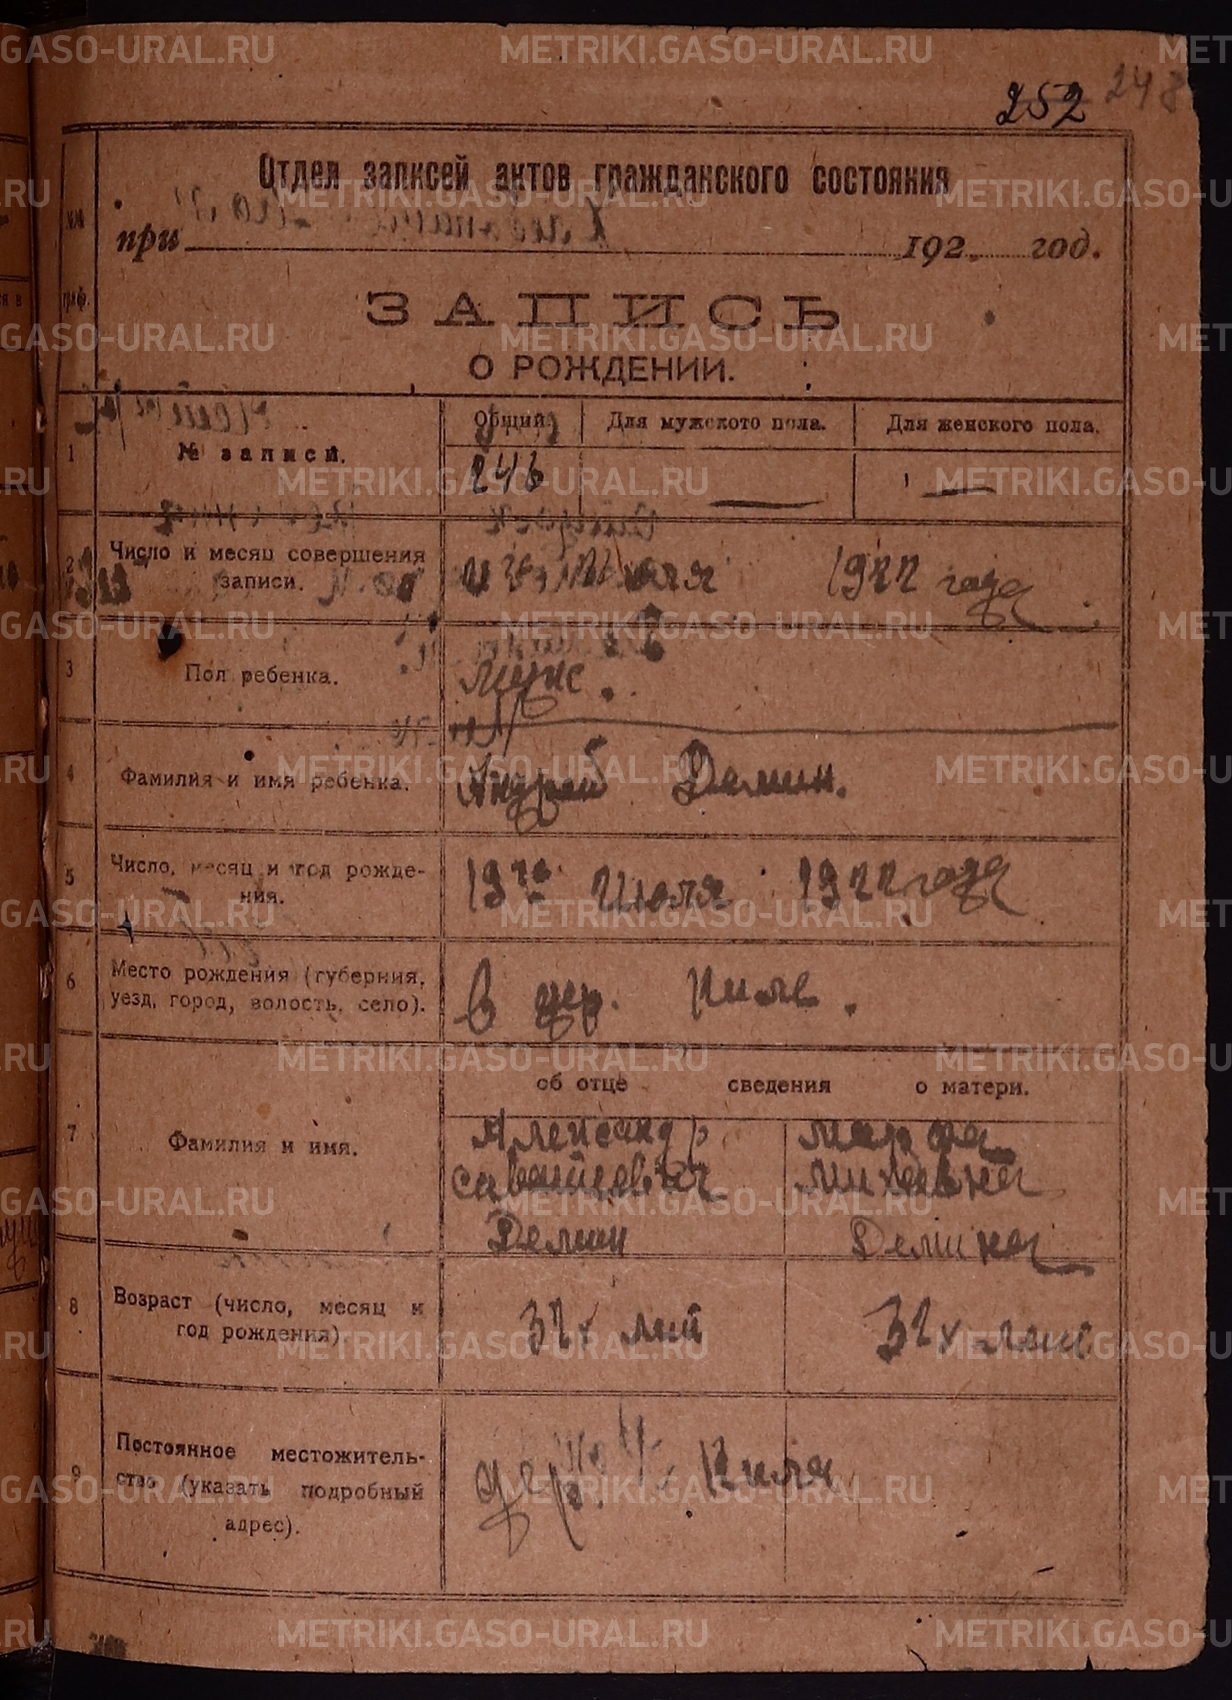 252 248
Отдел записей актов гражданского состояния
№№
граф.
при 192 год.
ЗАПИСЬ
О РОЖДЕНИИ.
1 № записи.
Общий Для мужского пола. Для женского пола.
246 — —
2 Число и месяц совершения
записи.
Июля 1922 года
3 Пол ребенка.
Муж.
4 Фамилия и имя ребенка.
Андрей Демин.
5 Число, месяц и год рожде-
ния.
19го Июля 1922 года
6 Место рождения (губерния,
уезд, город, волость, село).
В дер.
об отце сведения о матери.
7 Фамилия и имя.
Александр Марфа
Михеевна
Демин Демина
8 Возраст (число, месяц и
год рождения)
32х лет 32х лет
9 Постоянное местожитель-
ство (указать подробный
адрес).
METRIKI.GASO-URAL.RU